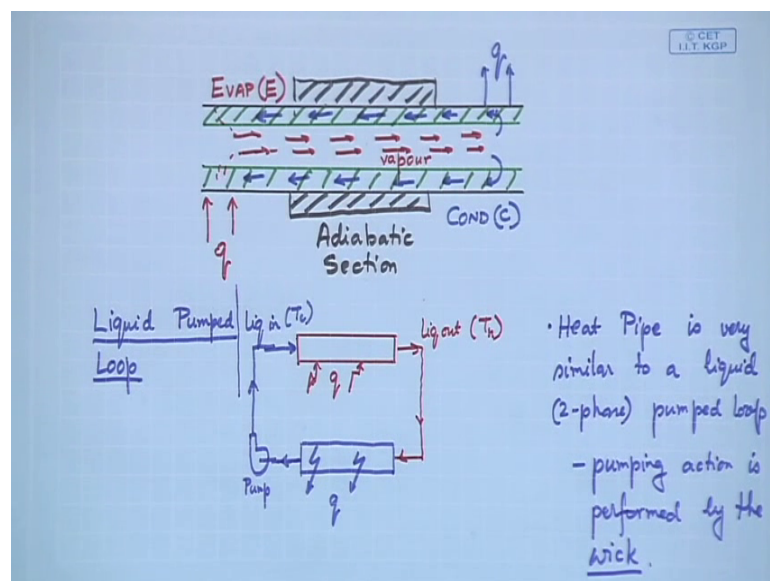 © CET
I.I.T. KGP
q
EVAP(E)
vapour
COND(C)
q
Adiabatic
Section
Liquid Pumped
Loop
Liq in (Tc)
Liq out (Th)
q
Pump
q
• Heat Pipe is very
similar to a liquid
(2-phase) pumped loop
- pumping action is
performed by the
wick.